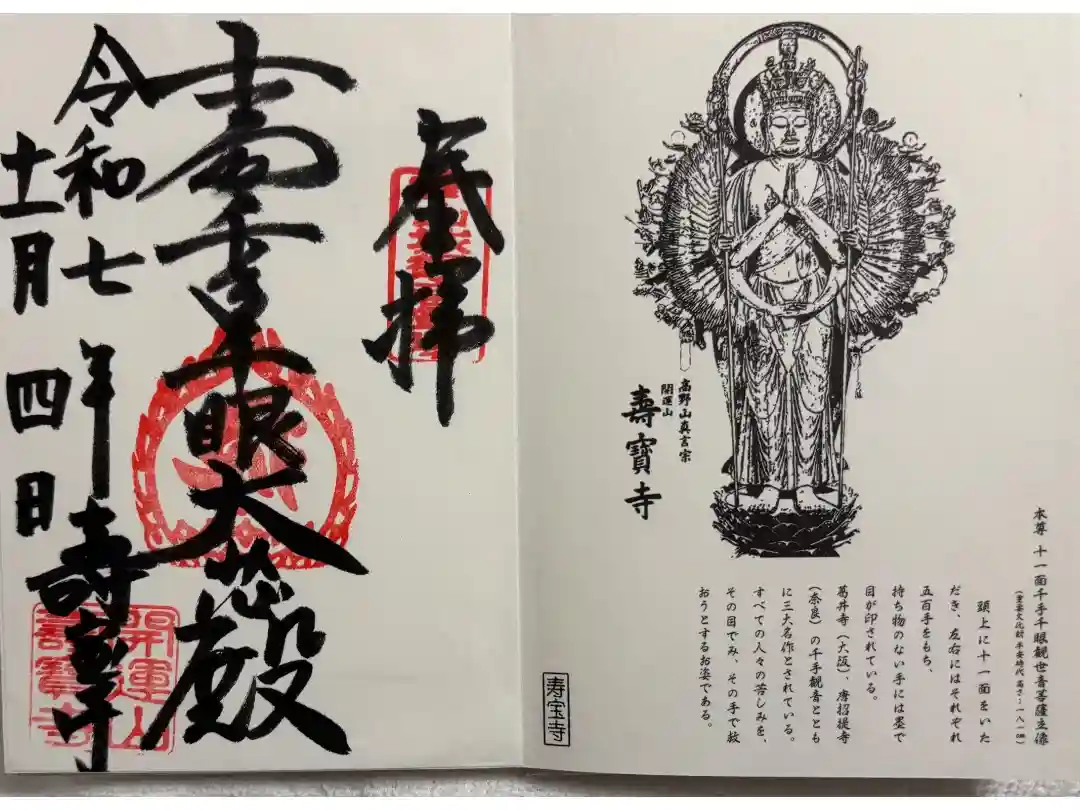 本尊 十一面千手千眼観世音菩薩立像
(重要文化財 平安時代 高さ一八一㎝)
頭上に十一面をいた
だき、左右にはそれぞれ
五百手をもち、
持ち物のない手には墨で
目が印されている。
葛井寺(大阪)、唐招提寺
(奈良)の千手観音ととも
に三大名作とされている。
すべての人々の苦しみを、
その目でみ、その手で救
おうとするお姿である。
高野山真言宗
開運山
壽寶寺
寿宝寺
奉拝
眼大悲殿
令和七年
十一月四日
壽寶寺
開運山
壽寶寺